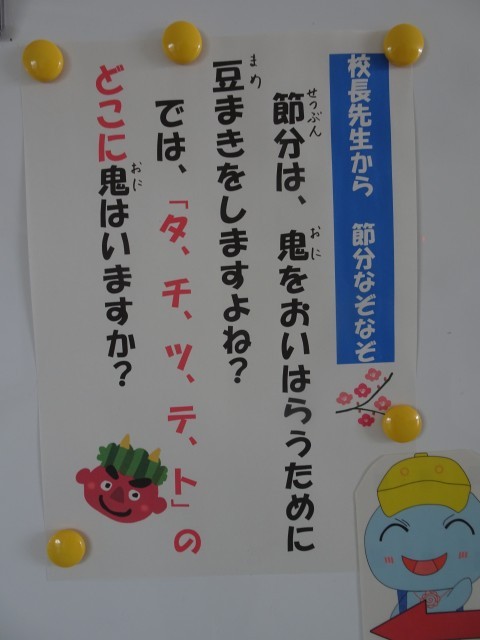 校長先生から　節分なぞなぞ
節分は、鬼をおいはらうために
豆まきをしますよね？
では、「タ、チ、ツ、テ、ト」の
どこに鬼はいますか？